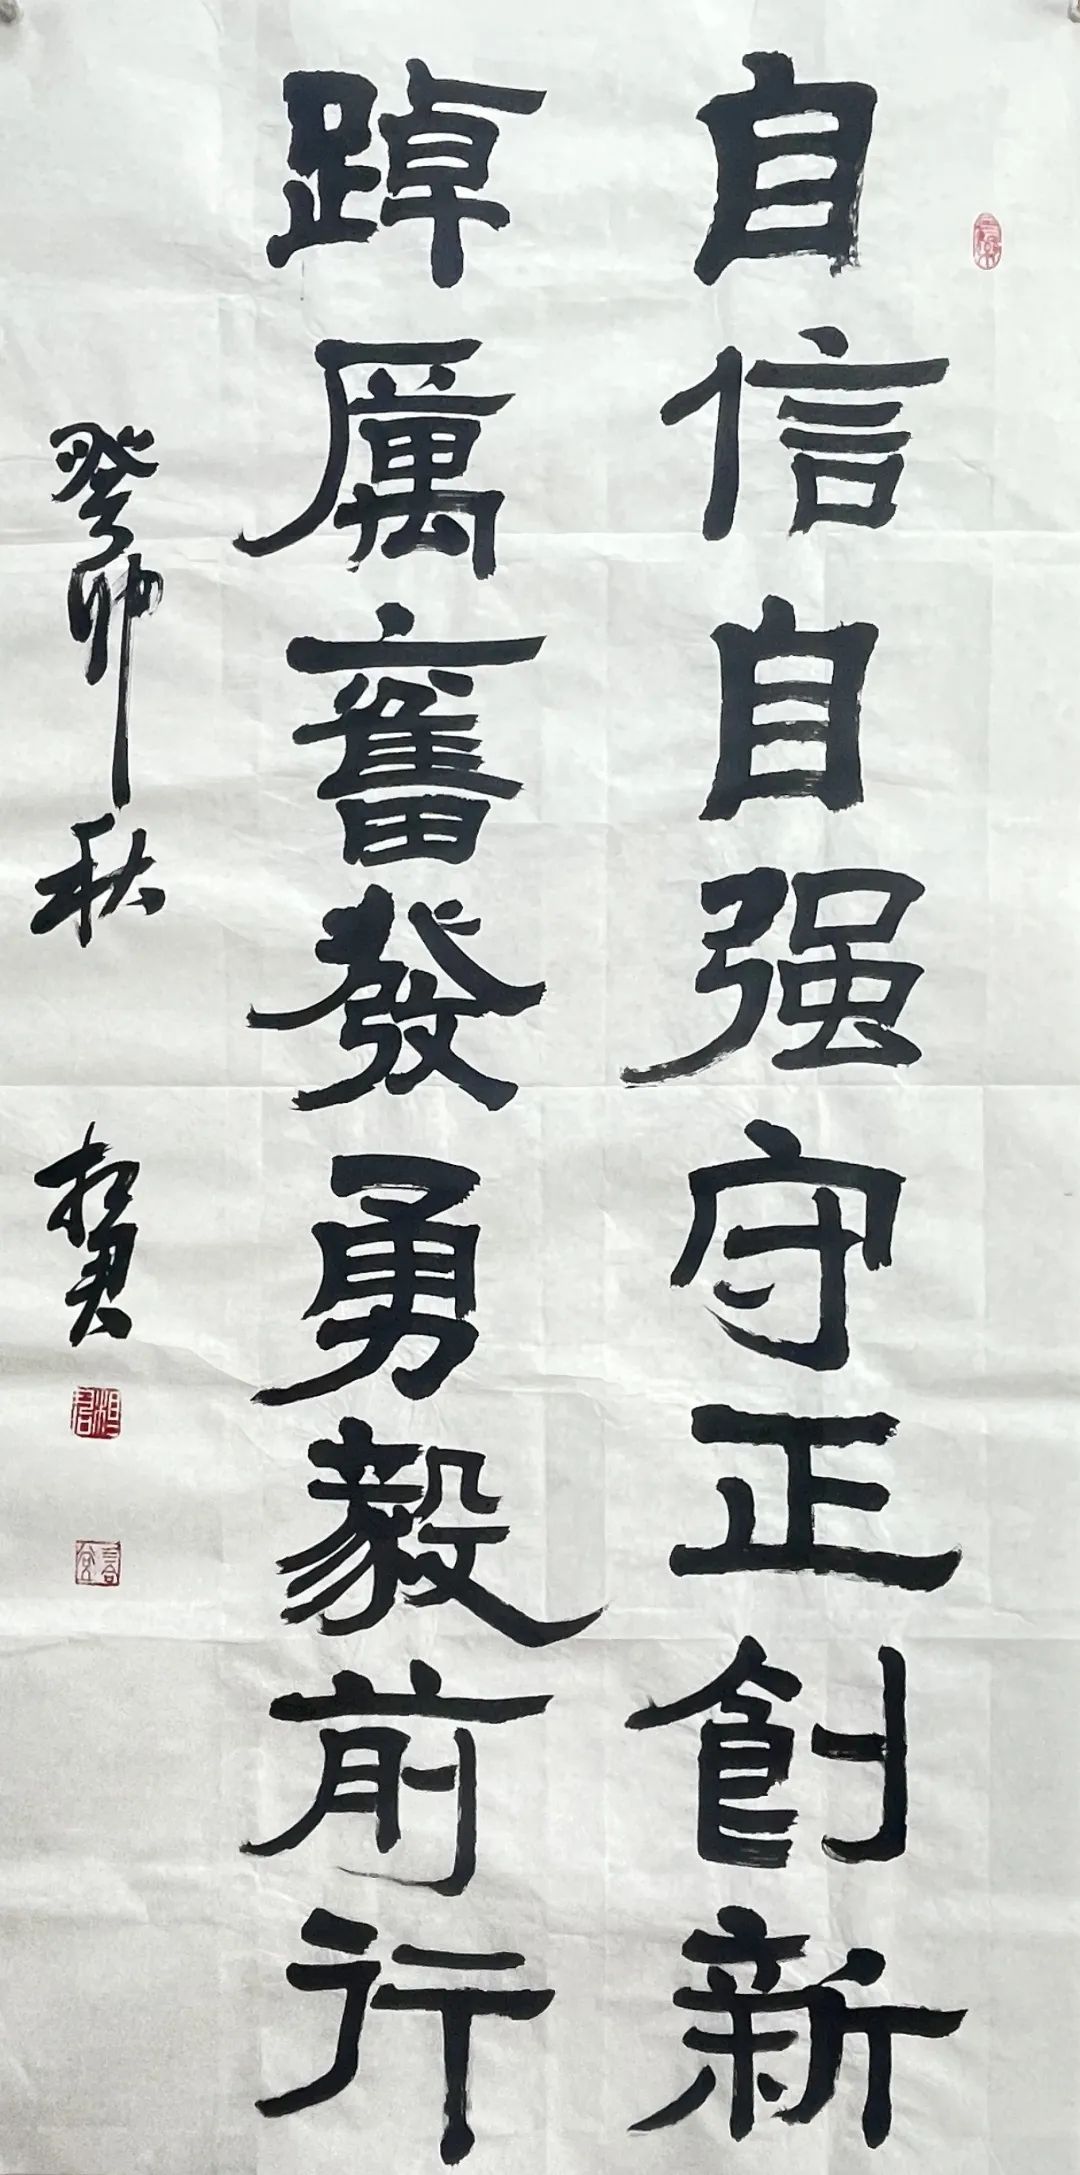 自信自强守正創新
踔厲奮發勇毅前行
癸卯秋